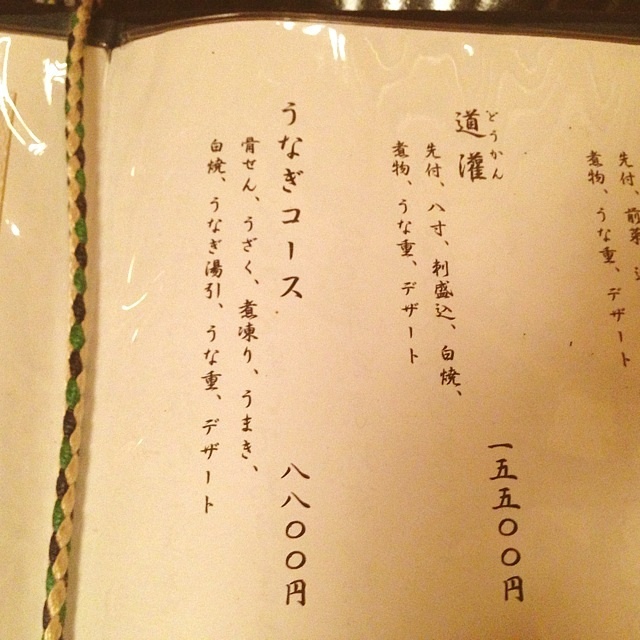 先付、前菜、
煮物、うな重、デザート
どうかん
道灌
一五五〇〇円
先付、八寸、刺盛込、白焼、
煮物、うな重、デザート
うなぎコース
八八〇〇円
骨せん、うざく、煮凍り、うまき、
白焼、うなぎ湯引、うな重、デザート